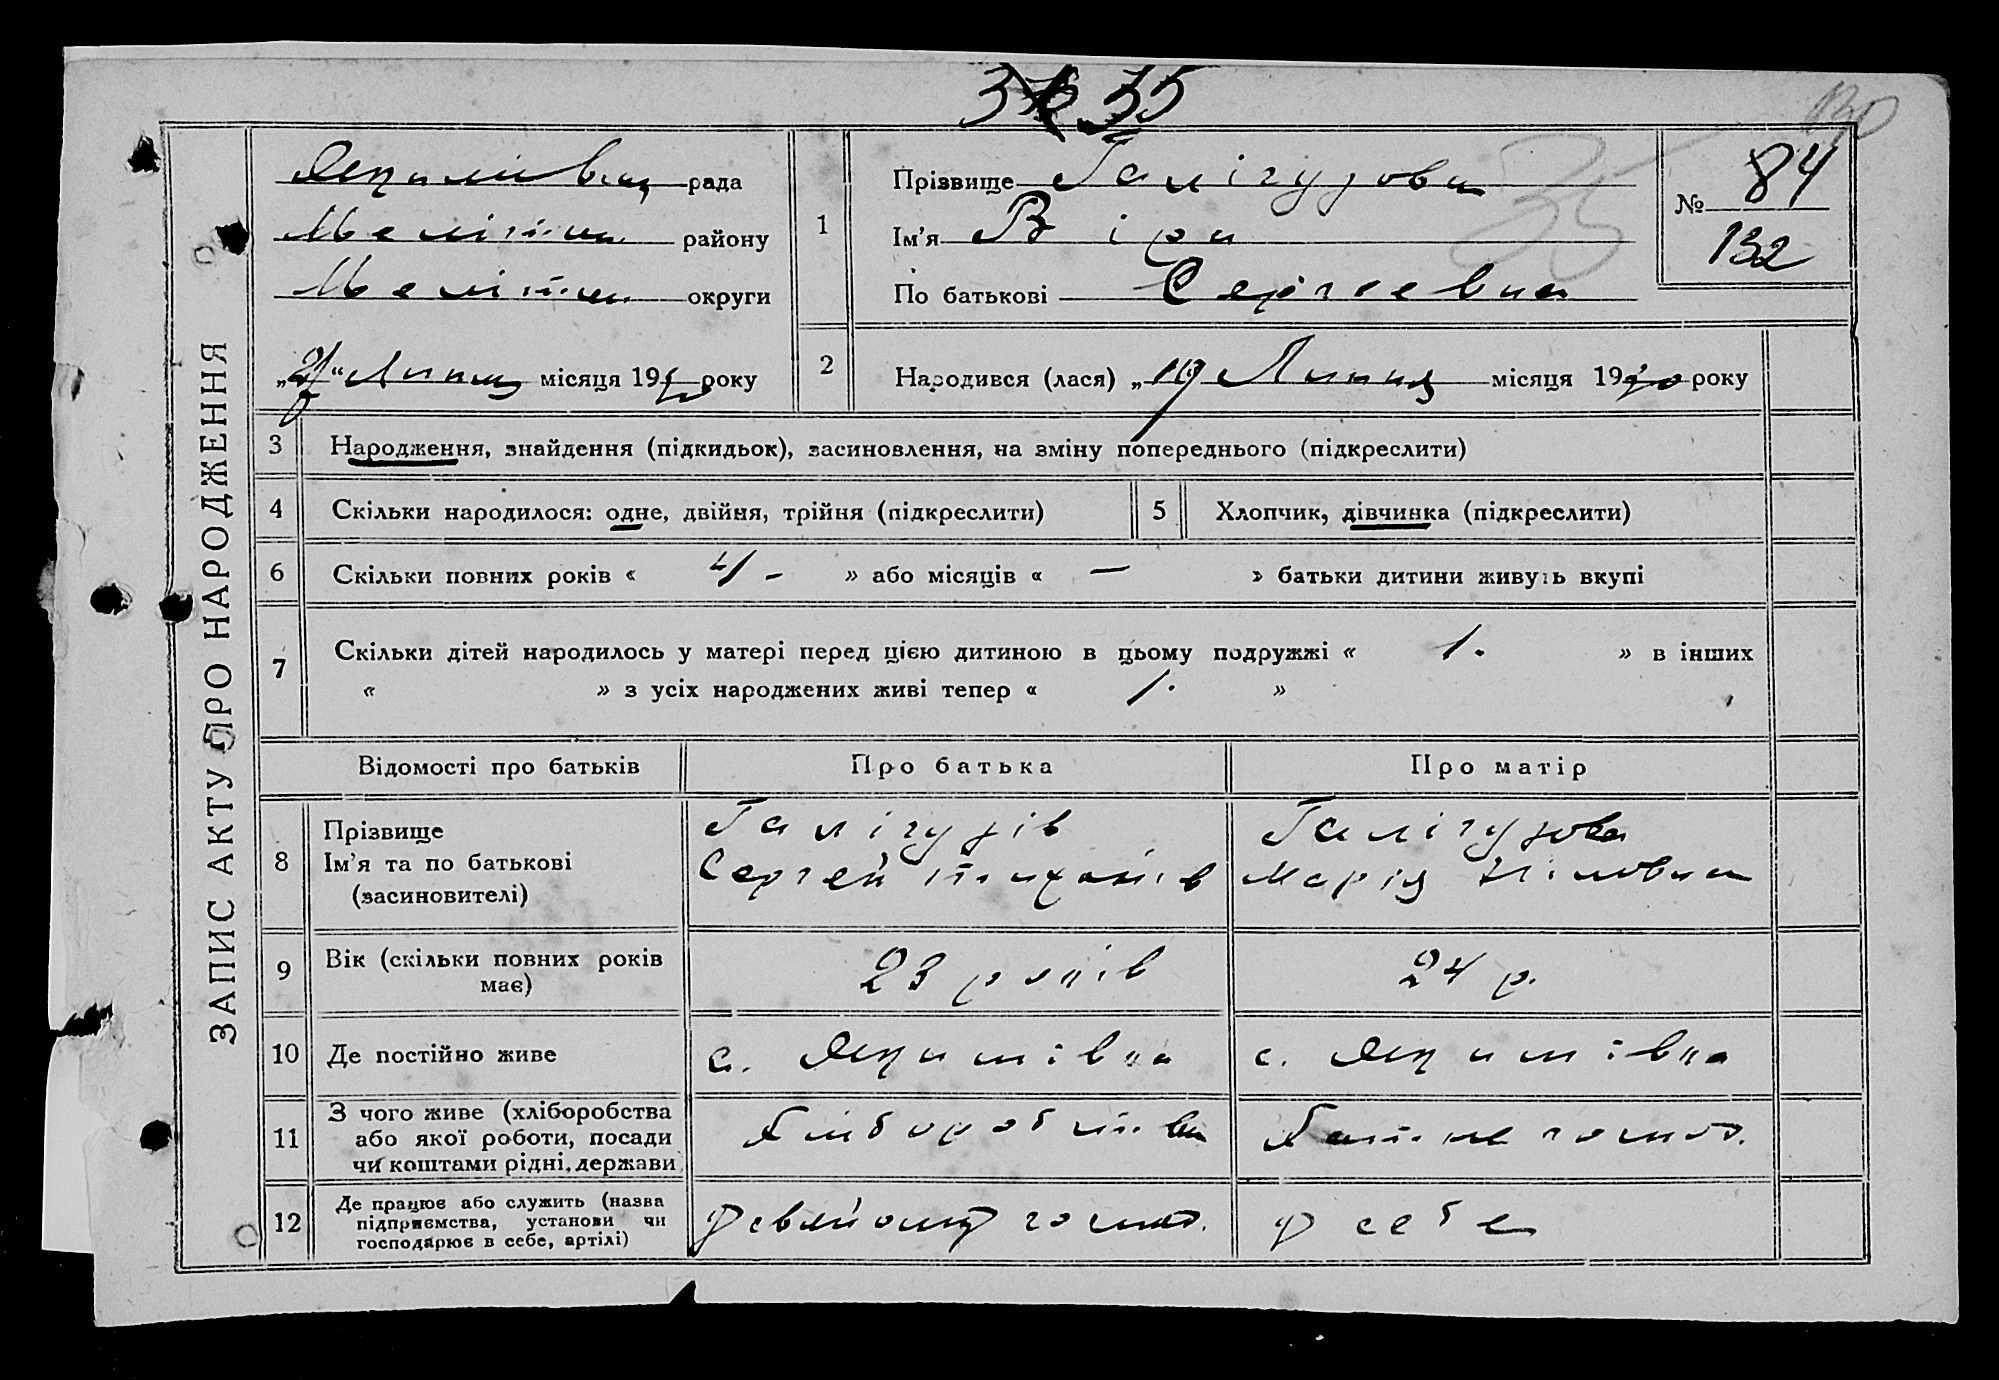 35
130
ЗАПИС АКТУ ПРО НАРОДЖЕННЯ
Якимівка рада
Меліт. району
Меліт. округи
місяця 19 року
1
Прізвище Галігузова
Ім'я Віра
По батькові Сергієвна
35
№ 84
132
2
Народився (лася) „19 Липня місяця 19 року
3
Народження, знайдення (підкидьок), засиновлення, на зміну попереднього (підкреслити)
4
Скільки народилося: одне, двійня, трійня (підкреслити)
5
Хлопчик, дівчинка (підкреслити)
6
Скільки повних років « 4 - » або місяців « — » батьки дитини живуть вкупі
7
Скільки дітей народилось у матері перед цією дитиною в цьому подружжі « 1. » в інших
« » з усіх народжених живі тепер « 1. »
Відомості про батьків
Про батька
Про матір
8
Прізвище
Ім'я та по батькові
(засиновителі)
Галігузів
Сергей Тихонів
Галігузова
Марія
9
Вік (скільки повних років
має)
23 років
24 р.
10
Де постійно живе
с. Якимівка
с. Якимівка
11
З чого живе (хліборобства
або якої роботи, посади
чи коштами рідні, держави
Хліборобства
Хатне госпо.
12
Де працює або служить (назва
підприємства, установи чи
господарює в себе, артілі)
госпо.
У себе